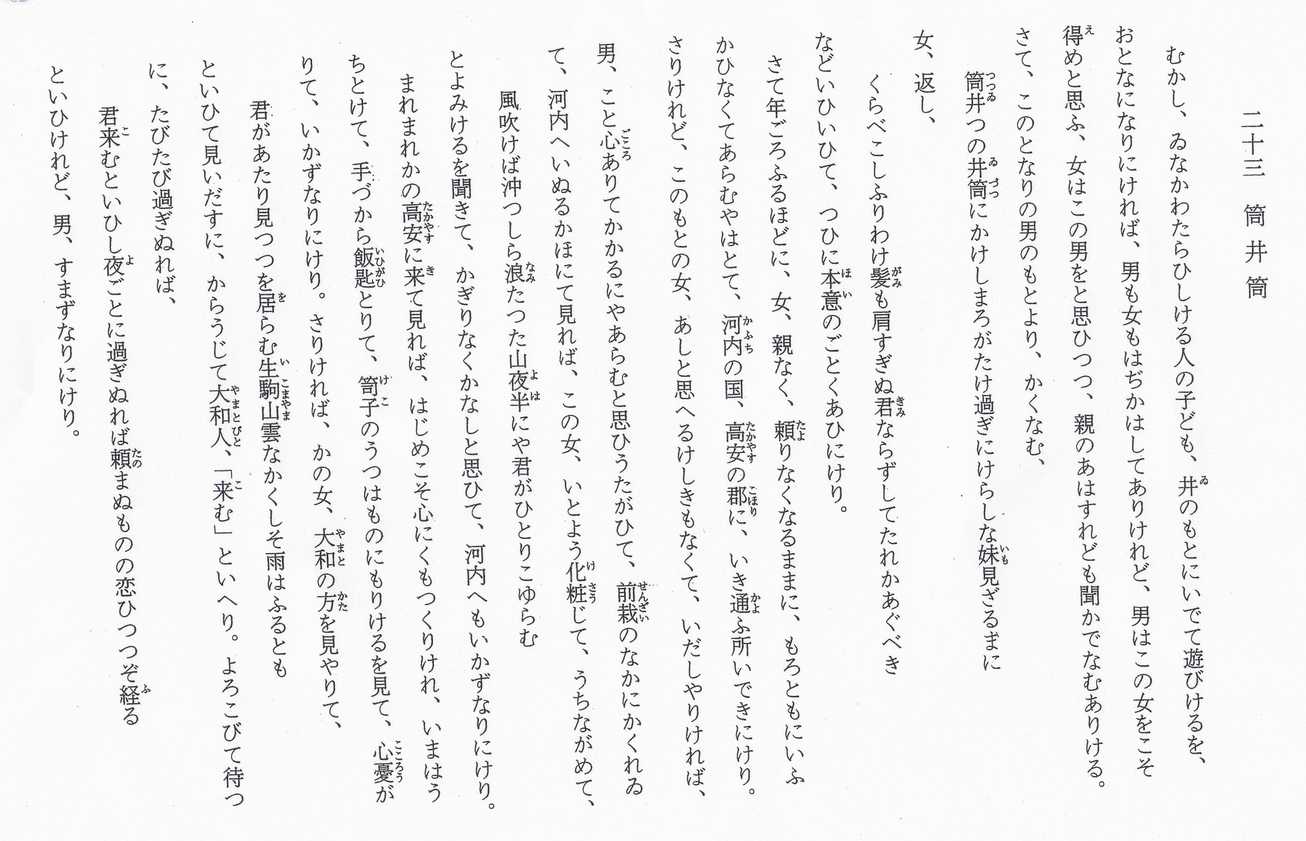 二十三 筒井筒
むかし、ゐなかわたらひしける人の子ども、井のもとにいでて遊びけるを、
おとなになりにければ、男も女もはぢかはしてありけれど、男はこの女をこそ
得めと思ふ、女はこの男をと思ひつつ、親のあはすれども聞かでなむありける。
さて、このとなりの男のもとより、かくなむ、
筒井つの井筒にかけしまろがたけ過ぎにけらしな妹見ざるまに
女、返し、
くらべこしふりわけ髪も肩すぎぬ君ならずしてたれかあぐべき
などいひいひて、つひに本意のごとくあひにけり。
さて年ごろふるほどに、女、親なく、頼りなくなるままに、もろともにいふ
かひなくてあらむやはとて、河内の国、高安の郡に、いき通ふ所いできにけり。
さりけれど、このもとの女、あしと思へるけしきもなくて、いだしやりければ、
男、こと心ありてかかるにやあらむと思ひうたがひて、前栽のなかにかくれゐ
て、河内へいぬるかほにて見れば、この女、いとよう化粧じて、うちながめて、
風吹けば沖つしら浪たつた山夜半にや君がひとりこゆらむ
とよみけるを聞きて、かぎりなくかなしと思ひて、河内へもいかずなりにけり。
まれまれかの高安に来て見れば、はじめこそ心にくもつくりけれ、いまはう
ちとけて、手づから飯匙とりて、笥子のうつはものにもりけるを見て、心憂が
りて、いかずなりにけり。さりければ、かの女、大和の方を見やりて、
君があたり見つつを居らむ生駒山雲なかくしそ雨はふるとも
といひて見いだすに、からうじて大和人、「来む」といへり。よろこびて待つ
に、たびたび過ぎぬれば、
君来むといひし夜ごとに過ぎぬれば頼まぬものの恋ひつつぞ経る
といひけれど、男、すまずなりにけり。